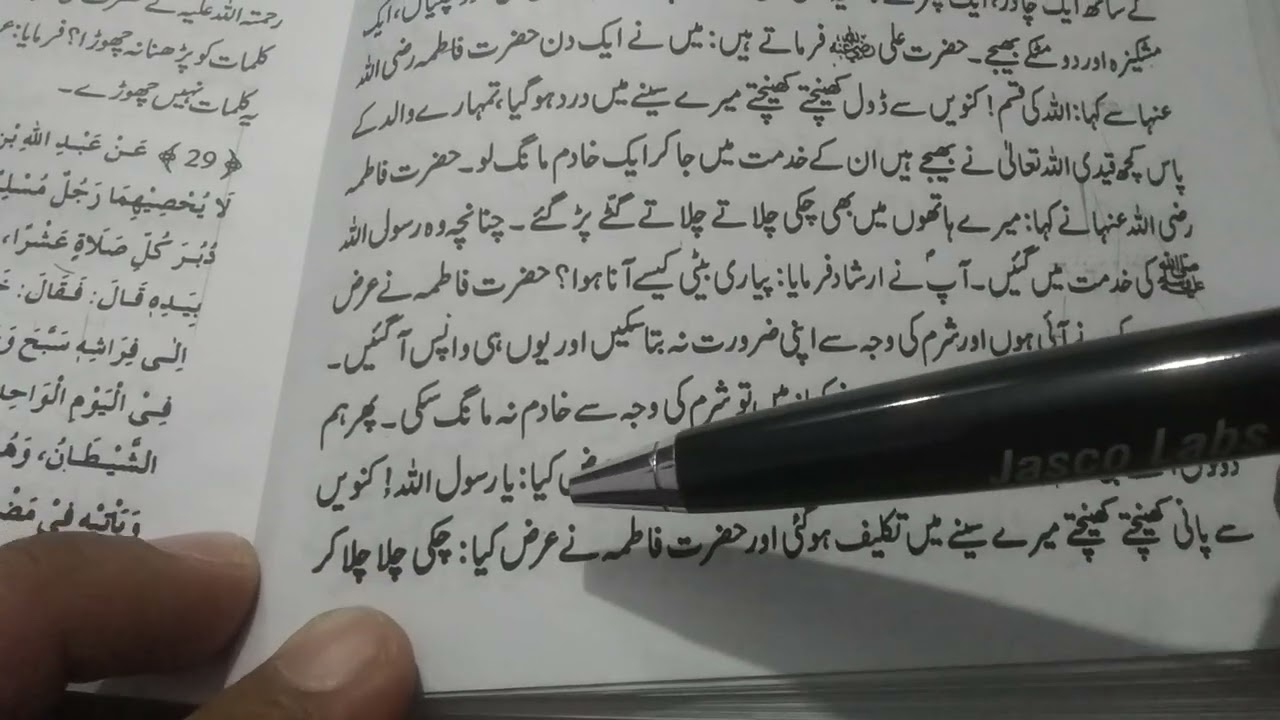 کے ساتھ ایک چادر، ایک
مشکیزہ اور دو مٹکے بھیجے۔ حضرت علی ﷛ فرماتے ہیں: میں نے ایک دن حضرت فاطمہ رضی اللہ
عنہا سے کہا: اللہ کی قسم! کنویں سے ڈول کھینچتے کھینچتے میرے سینے میں درد ہوگیا، تمہارے والد کے
پاس کچھ قیدی اللہ تعالیٰ نے بھیجے ہیں ان کے خدمت میں جا کر ایک خادم مانگ لو۔ حضرت فاطمہ
رضی اللہ عنہا نے کہا: میرے ہاتھوں میں بھی چکی چلاتے چلاتے گٹے پڑ گئے۔ چنانچہ وہ رسول اللہ
ﷺ کی خدمت میں گئیں۔ آپؐ نے ارشاد فرمایا: پیاری بیٹی کیسے آنا ہوا؟ حضرت فاطمہ نے عرض
آئی ہوں اور شرم کی وجہ سے اپنی ضرورت نہ بتا سکیں اور یوں ہی واپس آ گئیں۔
تو شرم کی وجہ سے خادم نہ مانگ سکی۔ پھر ہم
کیا: یا رسول اللہ! کنویں
سے پانی کھینچتے کھینچتے میرے سینے میں تکلیف ہوگئی اور حضرت فاطمہ نے عرض کیا: چکی چلا چلا کر
رحمۃ اللہ علیہ نے
کلمات کو پڑھنا نہ چھوڑا؟ فرمایا:
یہ کلمات نہیں چھوڑے۔
﴿29﴾ عَنْ عَبْدِ اللهِ بْنِ
لَا يُحْصِيْهِمَا رَجُلٌ
دُبُرَ كُلِّ صَلَاةٍ عَشْرًا،
بِيَدِهٖ قَالَ: فَقَالَ:
اِلٰى فِرَاشِهٖ سَبَّحَ
فِى الْيَوْمِ
الشَّيْطَانُ،
وَيَأْتِيْهِ فِىْ
Jasco Labs